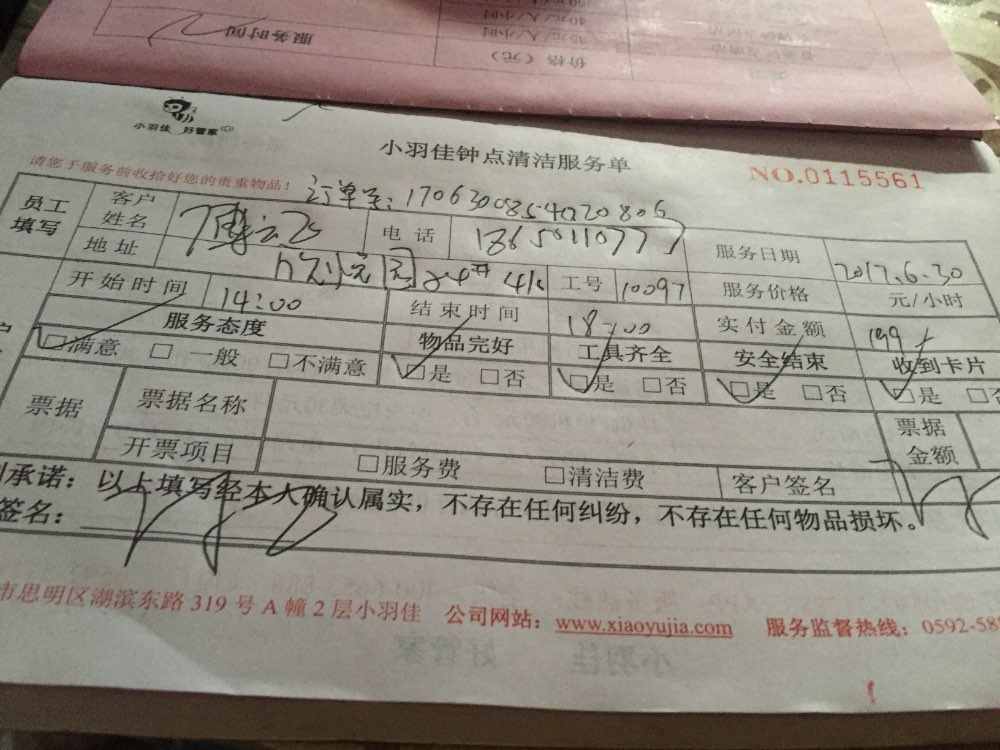 服务时间
价格（元）
35元/人/小时
40元/人/小时
小羽佳 好管家
小羽佳钟点清洁服务单
NO.0115561
请您于服务前收拾好您的贵重物品！
订单号：170630085402 20806
员工填写
客户姓名
电话
18650110777
服务日期
2017.6.30
地址
工号
10097
服务价格
元/小时
开始时间
14:00
结束时间
18:00
实付金额
199
服务态度
物品完好
工具齐全
安全结束
收到卡片
□满意 □一般 □不满意
□是 □否
□是 □否
□是 □否
□是 □否
票据
票据名称
票据金额
开票项目
□服务费 □清洁费
客户签名
承诺：以上填写经本人确认属实，不存在任何纠纷，不存在任何物品损坏。
签名：
市思明区湖滨东路 319 号 A 幢 2 层小羽佳 公司网站：www.xiaoyujia.com 服务监督热线：0592-58
小羽佳 好管家